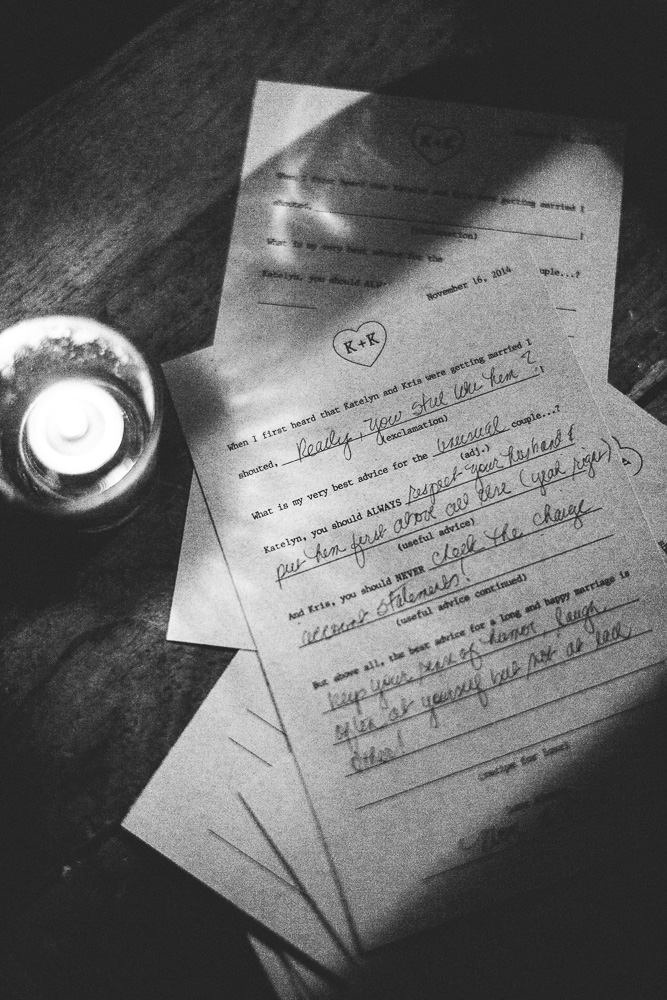 K+K
getting married I
shouted,
(exclamation)
What is my very best advice for the
Katelyn, you should
uple...?
November 16, 2014
K+K
When I first heard that Katelyn and Kris were getting married I
shouted, Really, you still like him?!
(exclamation)
What is my very best advice for the unusual couple...?
(adj.)
Katelyn, you should ALWAYS respect your husband &
put him first above all else (yeah right)
(useful advice)
And Kris, you should NEVER check the charge
account statements!
(useful advice continued)
But above all, the best advice for a long and happy marriage is
keep your sense of humor, laugh
often at yourself but not at each
other!
(recipe for love)